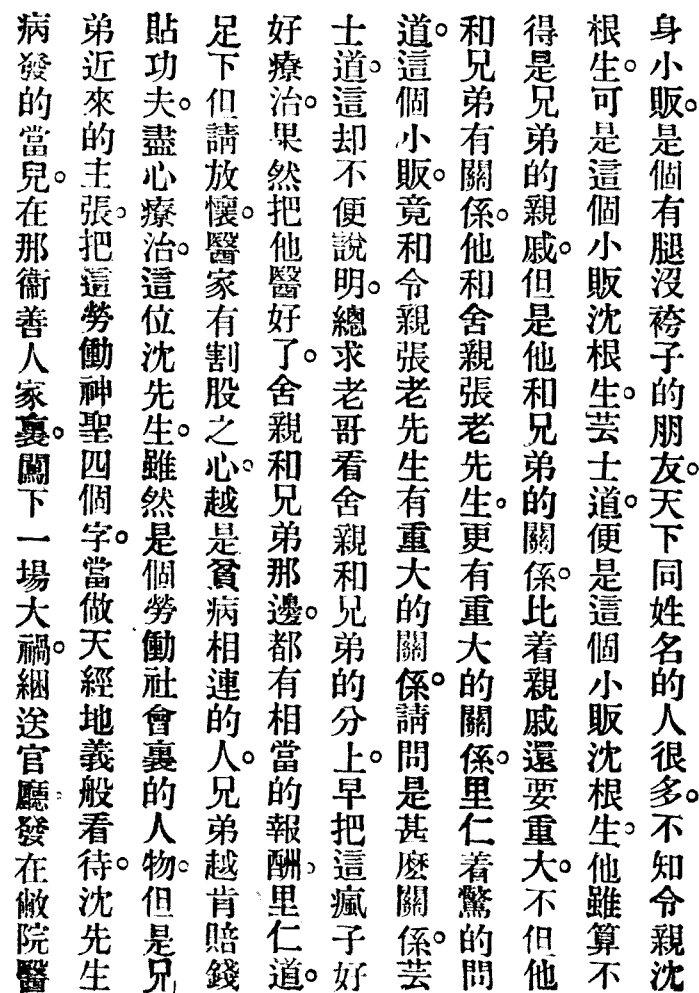 身小販。是個有腿沒袴子的朋友。天下同姓名的人很多。不知令親沈
根生。可是這個小販沈根生。芸士道。便是這個小販沈根生。他雖算不
得是兄弟的親戚。但是他和兄弟的關係。比着親戚還要重大。不但他
和兄弟有關係。他和舍親張老先生。更有重大的關係。里仁着驚的問
道。這個小販。竟和令親張老先生有重大的關係。請問是甚麽關係。芸
士道。這却不便說明。總求老哥看舍親和兄弟的分上。早把這瘋子好
好療治。果然把他醫好了。舍親和兄弟那邊。都有相當的報酬。里仁道。
足下但請放懷。醫家有割股之心。越是貧病相連的人。兄弟越肯賠錢
貼功夫。盡心療治。這位沈先生。雖然是個勞働社會裏的人物。但是兄
弟近來的主張。把這勞働神聖四個字。當做天經地義般看待。沈先生
病發的當兒。在那衞善人家裏。闖下一場大禍。綑送官廳。發在敝院醫